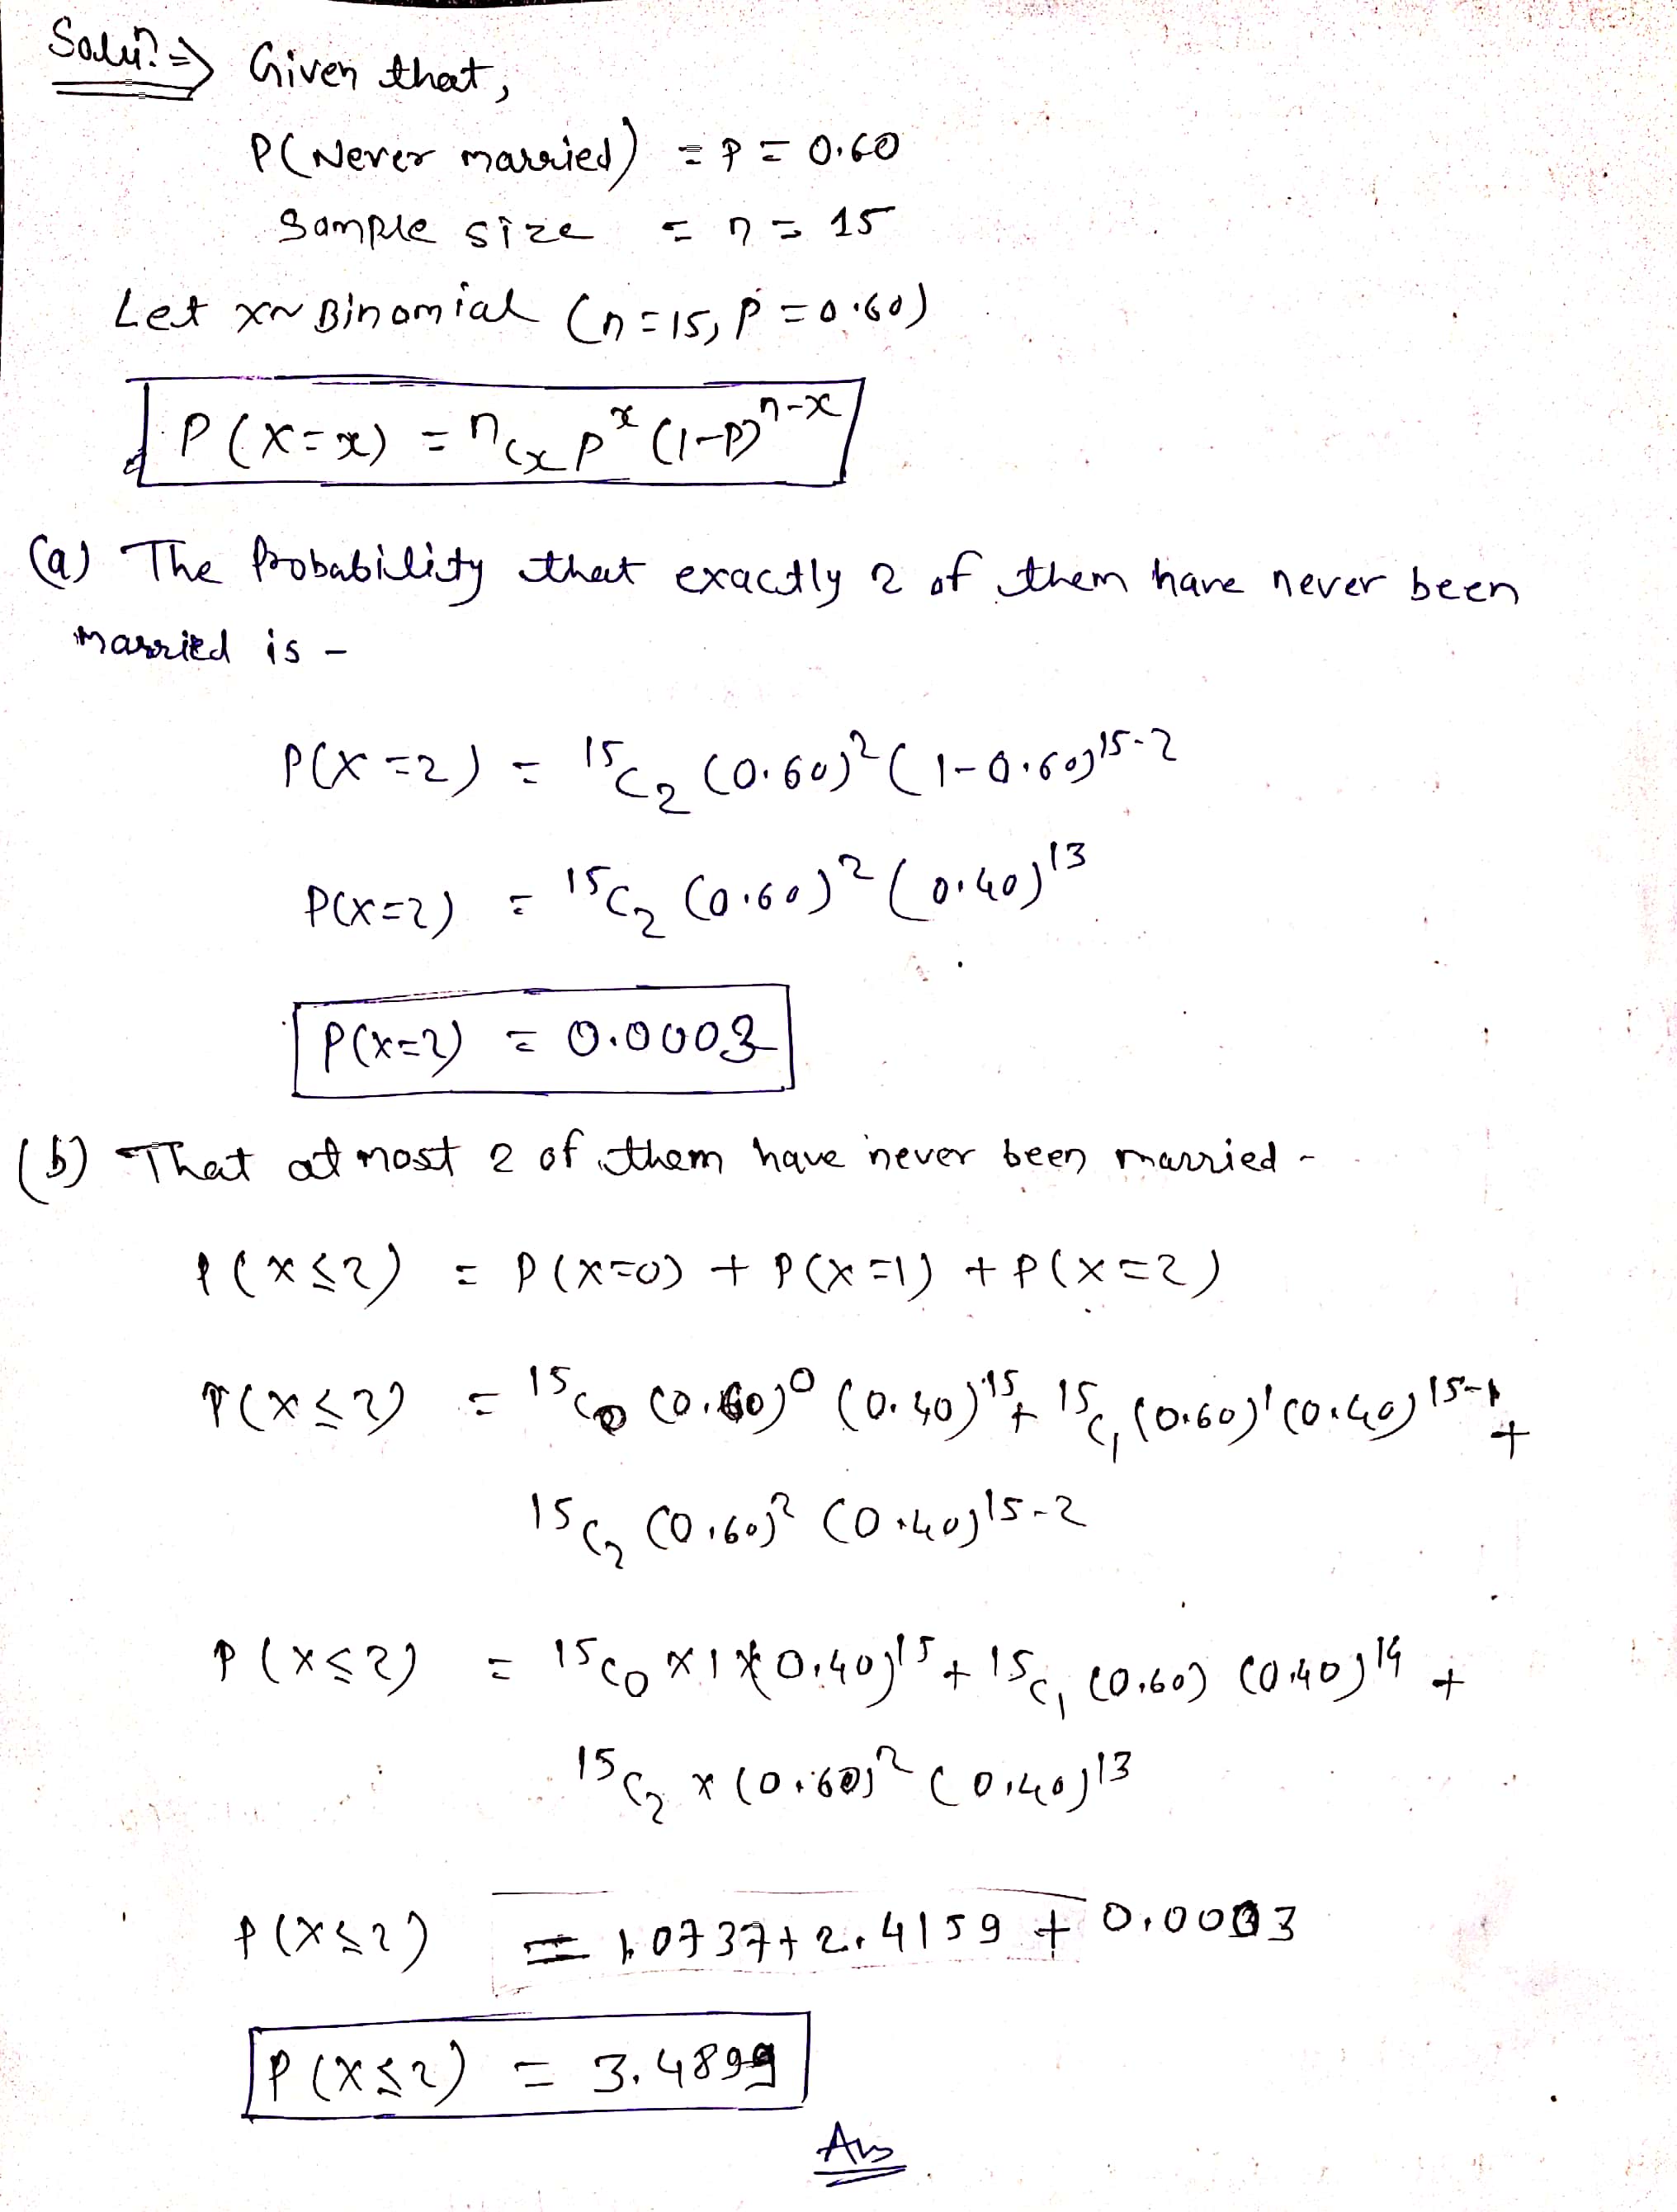 Soluⁿ ⇒ Given that,
P(Never married) = P = 0.60
Sample size = n = 15
Let x~ Binomial (n=15, P=0.60)
P(X=x) = ⁿCₓ pˣ (1-P)ⁿ⁻ˣ
(a) The Probability that exactly 2 of them have never been
married is -
P(X=2) = ¹⁵C₂ (0.60)² (1-0.60)¹⁵⁻²
P(X=2) = ¹⁵C₂ (0.60)² (0.40)¹³
P(X=2) = 0.0003
(b) That at most 2 of them have never been married -
P(X≤2) = P(X=0) + P(X=1) + P(X=2)
P(X≤2) = ¹⁵C₀ (0.60)⁰ (0.40)¹⁵ + ¹⁵C₁ (0.60)¹ (0.40)¹⁵⁻¹ +
¹⁵C₂ (0.60)² (0.40)¹⁵⁻²
P(X≤2) = ¹⁵C₀ × 1 × (0.40)¹⁵ + ¹⁵C₁ (0.60) (0.40)¹⁴ +
¹⁵C₂ × (0.60)² (0.40)¹³
P(X≤2) = 1.0737 + 2.4159 + 0.0003
P(X≤2) = 3.4899
Ans